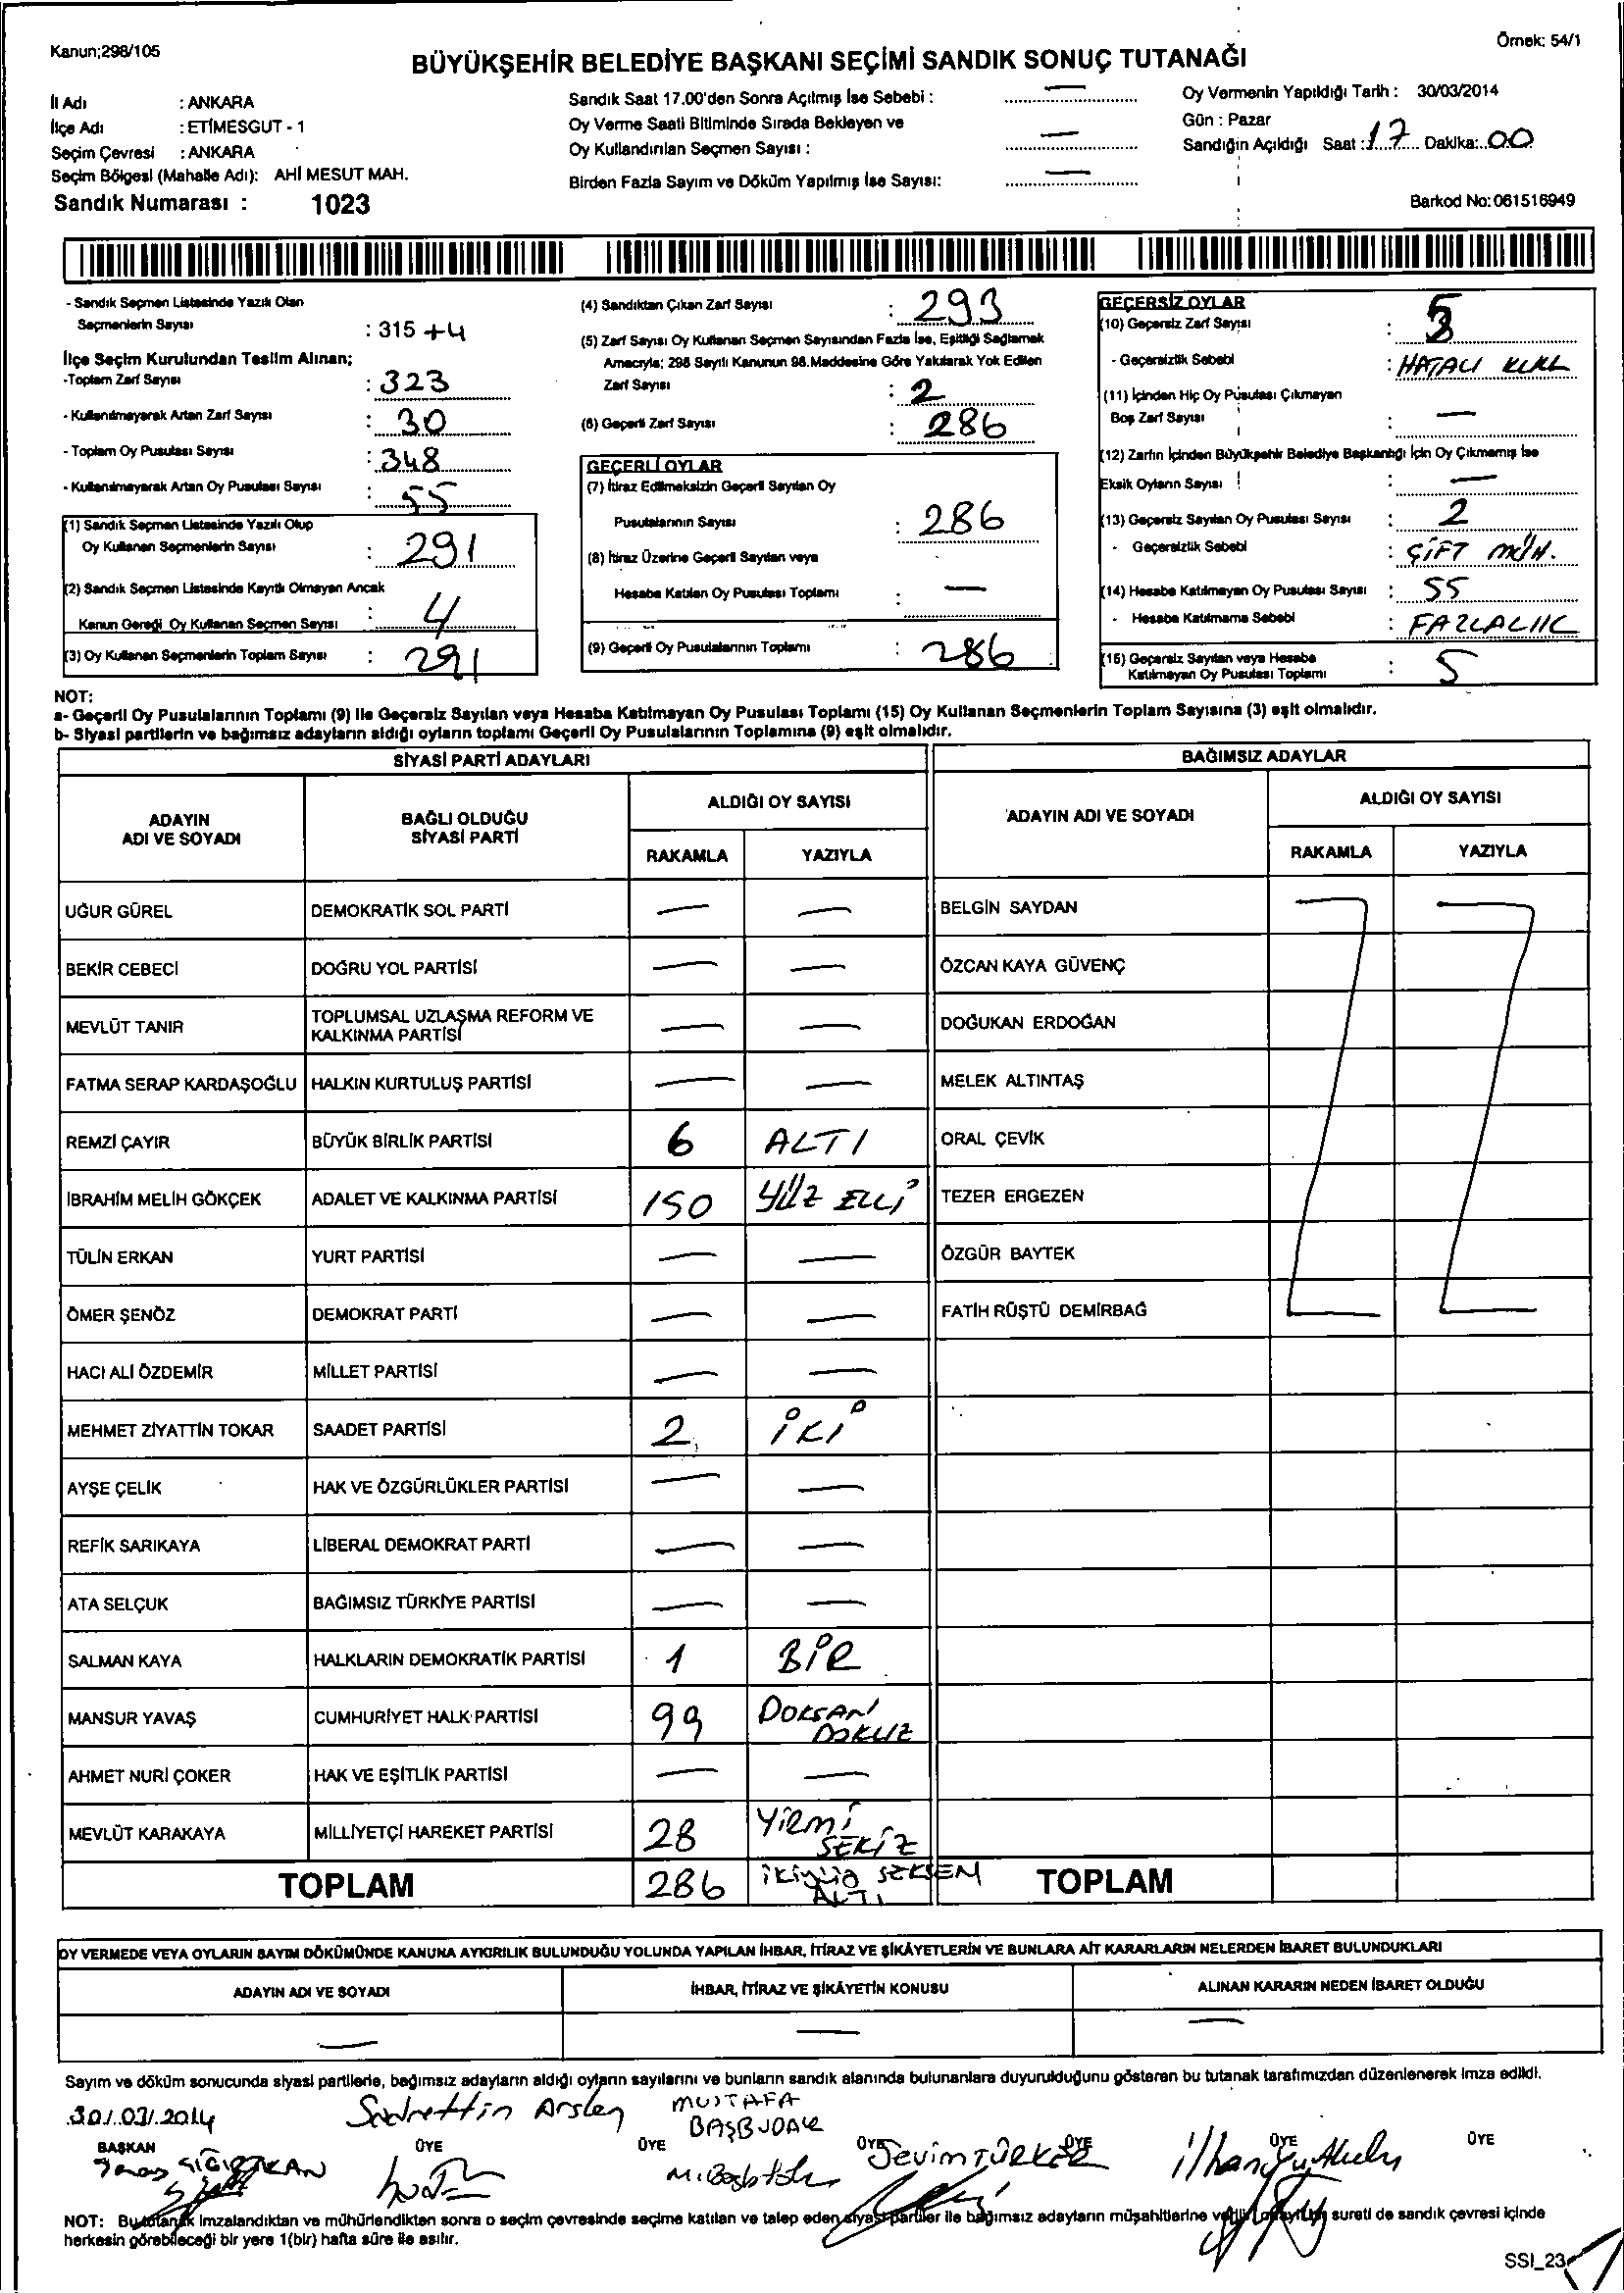 Kanun;298/105
Örnek: 54/1
BÜYÜKŞEHİR BELEDİYE BAŞKANI SEÇİMİ SANDIK SONUÇ TUTANAĞI
İl Adı : ANKARA
İlçe Adı : ETİMESGUT - 1
Seçim Çevresi : ANKARA
Seçim Bölgesi (Mahalle Adı): AHİ MESUT MAH.
Sandık Numarası : 1023
Sandık Saat 17.00'den Sonra Açılmış İse Sebebi : —
Oy Verme Saati Bitiminde Sırada Bekleyen ve
Oy Kullandırılan Seçmen Sayısı : —
Birden Fazla Sayım ve Döküm Yapılmış İse Sayısı: —
Oy Vermenin Yapıldığı Tarih : 30/03/2014
Gün : Pazar
Sandığın Açıldığı Saat : 17 Dakika: 00
Barkod No: 061516949
- Sandık Seçmen Listesinde Yazılı Olan
Seçmenlerin Sayısı : 315 +4
İlçe Seçim Kurulundan Teslim Alınan;
-Toplam Zarf Sayısı : 323
- Kullanılmayarak Artan Zarf Sayısı : 30
- Toplam Oy Pusulası Sayısı : 348
- Kullanılmayarak Artan Oy Pusulası Sayısı : 55
(1) Sandık Seçmen Listesinde Yazılı Olup
Oy Kullanan Seçmenlerin Sayısı : 291
(2) Sandık Seçmen Listesinde Kayıtlı Olmayan Ancak
Kanun Gereği Oy Kullanan Seçmen Sayısı : 4
(3) Oy Kullanan Seçmenlerin Toplam Sayısı : 291
(4) Sandıktan Çıkan Zarf Sayısı : 293
(5) Zarf Sayısı Oy Kullanan Seçmen Sayısından Fazla İse, Eşitliği Sağlamak
Amacıyla; 298 Sayılı Kanunun 98.Maddesine Göre Yakılarak Yok Edilen
Zarf Sayısı : 2
(6) Geçerli Zarf Sayısı : 286
GEÇERLİ OYLAR
(7) İtiraz Edilmeksizin Geçerli Sayılan Oy
Pusulalarının Sayısı : 286
(8) İtiraz Üzerine Geçerli Sayılan veya
Hesaba Katılan Oy Pusulası Toplamı : —
(9) Geçerli Oy Pusulalarının Toplamı : 286
GEÇERSİZ OYLAR
(10) Geçersiz Zarf Sayısı :
- Geçersizlik Sebebi : HATALI KUL
(11) İçinden Hiç Oy Pusulası Çıkmayan
Boş Zarf Sayısı : —
(12) Zarfın İçinden Büyükşehir Belediye Başkanlığı İçin Oy Çıkmamış İse
Eksik Oyların Sayısı : —
(13) Geçersiz Sayılan Oy Pusulası Sayısı : 2
- Geçersizlik Sebebi : ÇİFT MÜH.
(14) Hesaba Katılmayan Oy Pusulası Sayısı : 55
- Hesaba Katılmama Sebebi : FAZLALIK
(15) Geçersiz Sayılan veya Hesaba
Katılmayan Oy Pusulası Toplamı : 5
NOT:
a- Geçerli Oy Pusulalarının Toplamı (9) ile Geçersiz Sayılan veya Hesaba Katılmayan Oy Pusulası Toplamı (15) Oy Kullanan Seçmenlerin Toplam Sayısına (3) eşit olmalıdır.
b- Siyasi partilerin ve bağımsız adayların aldığı oyların toplamı Geçerli Oy Pusulalarının Toplamına (9) eşit olmalıdır.
SİYASİ PARTİ ADAYLARI
BAĞIMSIZ ADAYLAR
ADAYIN
ADI VE SOYADI
BAĞLI OLDUĞU
SİYASİ PARTİ
ALDIĞI OY SAYISI
RAKAMLA YAZIYLA
ADAYIN ADI VE SOYADI
ALDIĞI OY SAYISI
RAKAMLA YAZIYLA
UĞUR GÜREL DEMOKRATİK SOL PARTİ — — BELGİN SAYDAN
BEKİR CEBECİ DOĞRU YOL PARTİSİ — — ÖZCAN KAYA GÜVENÇ
MEVLÜT TANIR TOPLUMSAL UZLAŞMA REFORM VE
KALKINMA PARTİSİ — — DOĞUKAN ERDOĞAN
FATMA SERAP KARDAŞOĞLU HALKIN KURTULUŞ PARTİSİ — — MELEK ALTINTAŞ
REMZİ ÇAYIR BÜYÜK BİRLİK PARTİSİ 6 ALTI ORAL ÇEVİK
İBRAHİM MELİH GÖKÇEK ADALET VE KALKINMA PARTİSİ 150 YÜZ ELLİ TEZER ERGEZEN
TÜLİN ERKAN YURT PARTİSİ — — ÖZGÜR BAYTEK
ÖMER ŞENÖZ DEMOKRAT PARTİ — — FATİH RÜŞTÜ DEMİRBAĞ
HACI ALİ ÖZDEMİR MİLLET PARTİSİ — —
MEHMET ZİYATTİN TOKAR SAADET PARTİSİ 2 İKİ
AYŞE ÇELİK HAK VE ÖZGÜRLÜKLER PARTİSİ — —
REFİK SARIKAYA LİBERAL DEMOKRAT PARTİ — —
ATA SELÇUK BAĞIMSIZ TÜRKİYE PARTİSİ — —
SALMAN KAYA HALKLARIN DEMOKRATİK PARTİSİ 1 BİR
MANSUR YAVAŞ CUMHURİYET HALK PARTİSİ 99 DOKSAN
DOKUZ
AHMET NURİ ÇOKER HAK VE EŞİTLİK PARTİSİ — —
MEVLÜT KARAKAYA MİLLİYETÇİ HAREKET PARTİSİ 28 YİRMİ
SEKİZ
TOPLAM 286 İKİYÜZ SEKSEN
ALTI
TOPLAM
OY VERMEDE VEYA OYLARIN SAYIM DÖKÜMÜNDE KANUNA AYKIRILIK BULUNDUĞU YOLUNDA YAPILAN İHBAR, İTİRAZ VE ŞİKÂYETLERİN VE BUNLARA AİT KARARLARIN NELERDEN İBARET BULUNDUKLARI
ADAYIN ADI VE SOYADI
İHBAR, İTİRAZ VE ŞİKÂYETİN KONUSU
ALINAN KARARIN NEDEN İBARET OLDUĞU
— — —
Sayım ve döküm sonucunda siyasi partilerle, bağımsız adayların aldığı oyların sayılarını ve bunların sandık alanında bulunanlara duyurulduğunu gösteren bu tutanak tarafımızdan düzenlenerek imza edildi.
30/03/2014
Sadrettin Arslan
MUSTAFA
BAŞBUDAK
BAŞKAN ÜYE ÜYE ÜYE ÜYE ÜYE ÜYE
Sevim TÜRKER
İlhan
NOT: Bu tutanak imzalandıktan ve mühürlendikten sonra o seçim çevresinde seçime katılan ve talep eden siyasi partiler ile bağımsız adayların müşahitlerine verilir. Onaylı sureti de sandık çevresi içinde
herkesin görebileceği bir yere 1(bir) hafta süre ile asılır.
SSI_23